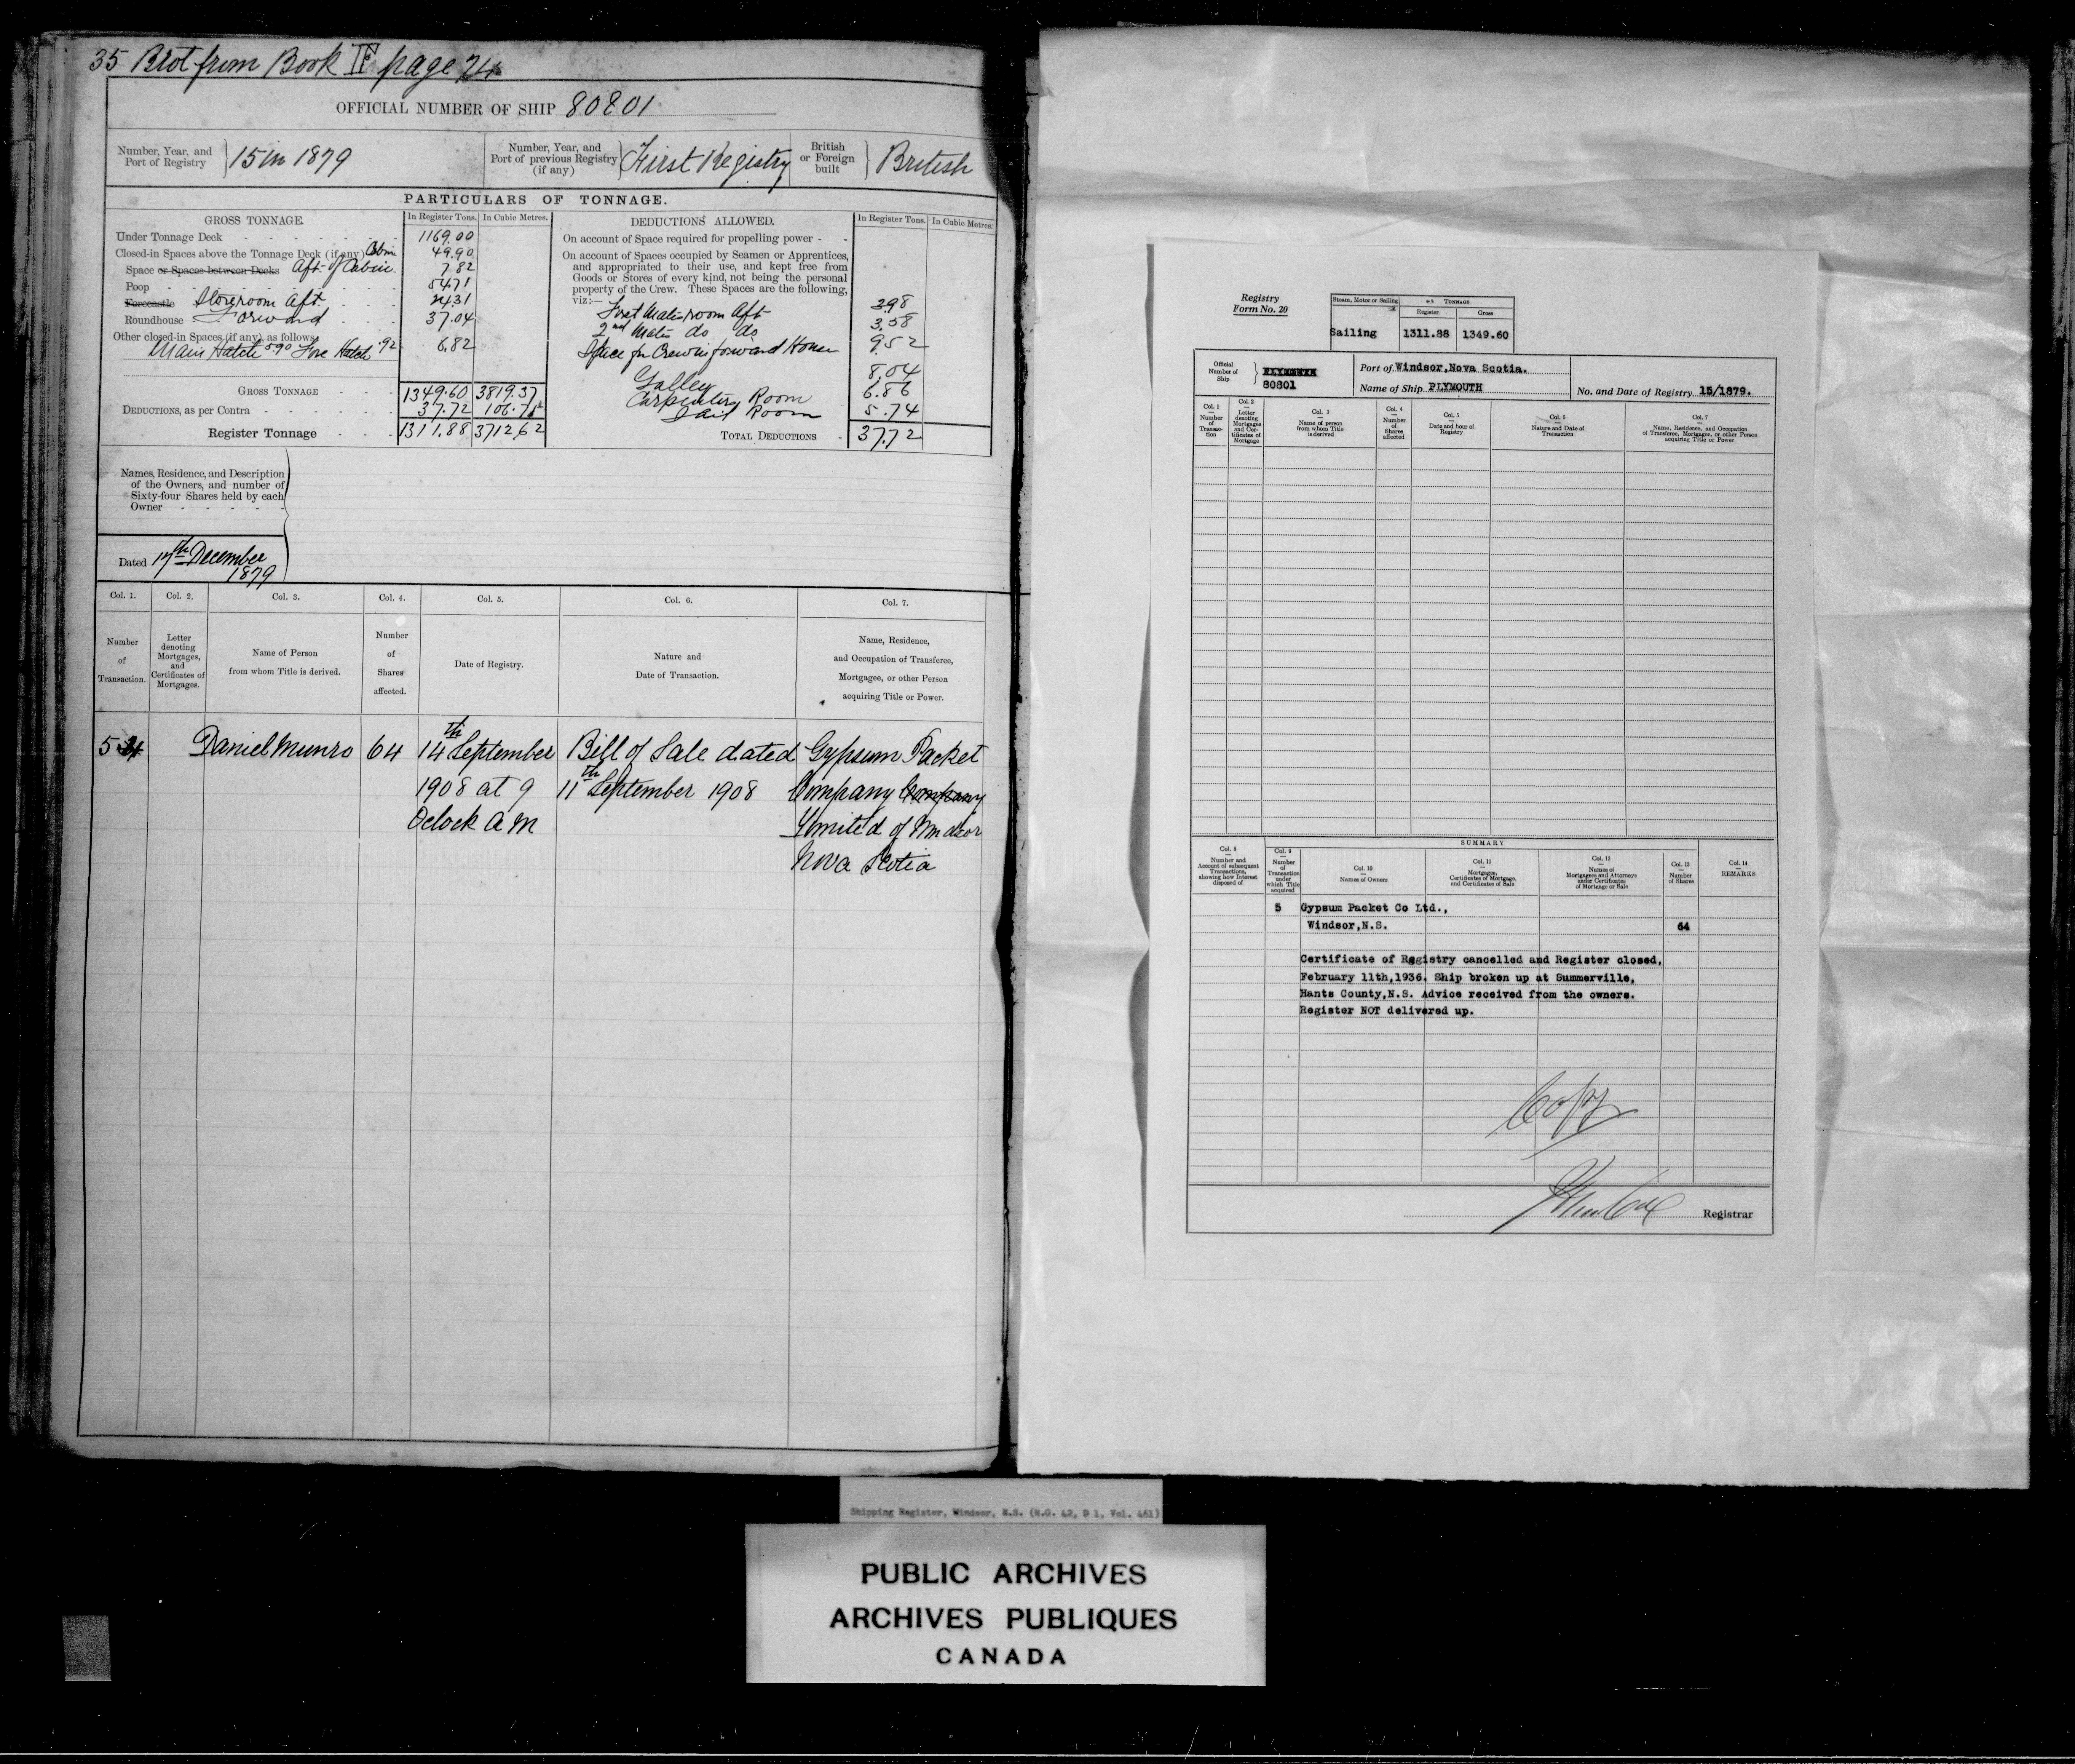 35 Brot from Book IF page 24
OFFICIAL NUMBER OF SHIP 80801
Number, Year, and Port of Registry } 15 in 1879
Number, Year, and Port of previous Registry (if any) } First Registry
British or Foreign built } British
PARTICULARS OF TONNAGE.
GROSS TONNAGE. In Register Tons. In Cubic Metres.
Under Tonnage Deck 1169.00
Closed-in Spaces above the Tonnage Deck (if any) Cabin 49.90
Space or Spaces between Decks Aft of Cabin 7.82
Poop 54.71
Forecastle Storeroom Aft 24.31
Roundhouse Forward 37.04
Other closed-in Spaces (if any), as follows:
Main Hatch 5.90 Fore Hatch .92 6.82
GROSS TONNAGE 1349.60 3819.37
DEDUCTIONS, as per Contra 37.72 106.75
Register Tonnage 1311.88 3712.62
DEDUCTIONS ALLOWED. In Register Tons. In Cubic Metres.
On account of Space required for propelling power - -
On account of Spaces occupied by Seamen or Apprentices,
and appropriated to their use, and kept free from
Goods or Stores of every kind, not being the personal
property of the Crew. These Spaces are the following,
viz:—
First Mates room Aft 3.98
2nd Mates do do 3.58
Space for Crew in forward House 9.52
Galley 8.04
Carpenters Room 6.86
Sail Room 5.74
TOTAL DEDUCTIONS 37.72
Names, Residence, and Description
of the Owners, and number of
Sixty-four Shares held by each
Owner
Dated 17th December
1879
Col. 1. Col. 2. Col. 3. Col. 4. Col. 5. Col. 6. Col. 7.
Number of Transaction.
Letter denoting Mortgages, and Certificates of Mortgages.
Name of Person from whom Title is derived.
Number of Shares affected.
Date of Registry.
Nature and Date of Transaction.
Name, Residence, and Occupation of Transferee, Mortgagee, or other Person acquiring Title or Power.
5 Daniel Munro 64 14th September Bill of Sale dated Gypsum Packet
1908 at 9 11th September 1908 Company Company
Oclock AM Limited of Windsor
Nova Scotia
Registry
Form No. 20
Steam, Motor or Sailing TONNAGE
Register Gross
Sailing 1311.88 1349.60
Official Number of Ship } PLYMOUTH
80801
Port of Windsor,Nova Scotia.
Name of Ship PLYMOUTH
No. and Date of Registry 15/1879.
Col. 1 Number of Transaction
Col. 2 Letter denoting Mortgages and Certificates of Mortgage
Col. 3 Name of person from whom Title is derived
Col. 4 Number of Shares affected
Col. 5 Date and hour of Registry
Col. 6 Nature and Date of Transaction
Col. 7 Name, Residence, and Occupation of Transferee, Mortgagee, or other Person acquiring Title or Power
SUMMARY
Col. 8 Number and Account of subsequent Transactions, showing how Interest disposed of
Col. 9 Number of Transaction under which Title acquired
Col. 10 Names of Owners
Col. 11 Mortgages, Certificates of Mortgage, and Certificates of Sale
Col. 12 Names of Mortgagees and Attorneys under Certificates of Mortgage or Sale
Col. 13 Number of Shares
Col. 14 REMARKS
5 Gypsum Packet Co Ltd.,
Windsor,N.S. 64
Certificate of Registry cancelled and Register closed,
February 11th,1936. Ship broken up at Summerville,
Hants County,N.S. Advice received from the owners.
Register NOT delivered up.
Copy
Registrar
Shipping Register, Windsor, N.S. (R.G. 42, D 1, Vol. 461)
PUBLIC ARCHIVES
ARCHIVES PUBLIQUES
CANADA